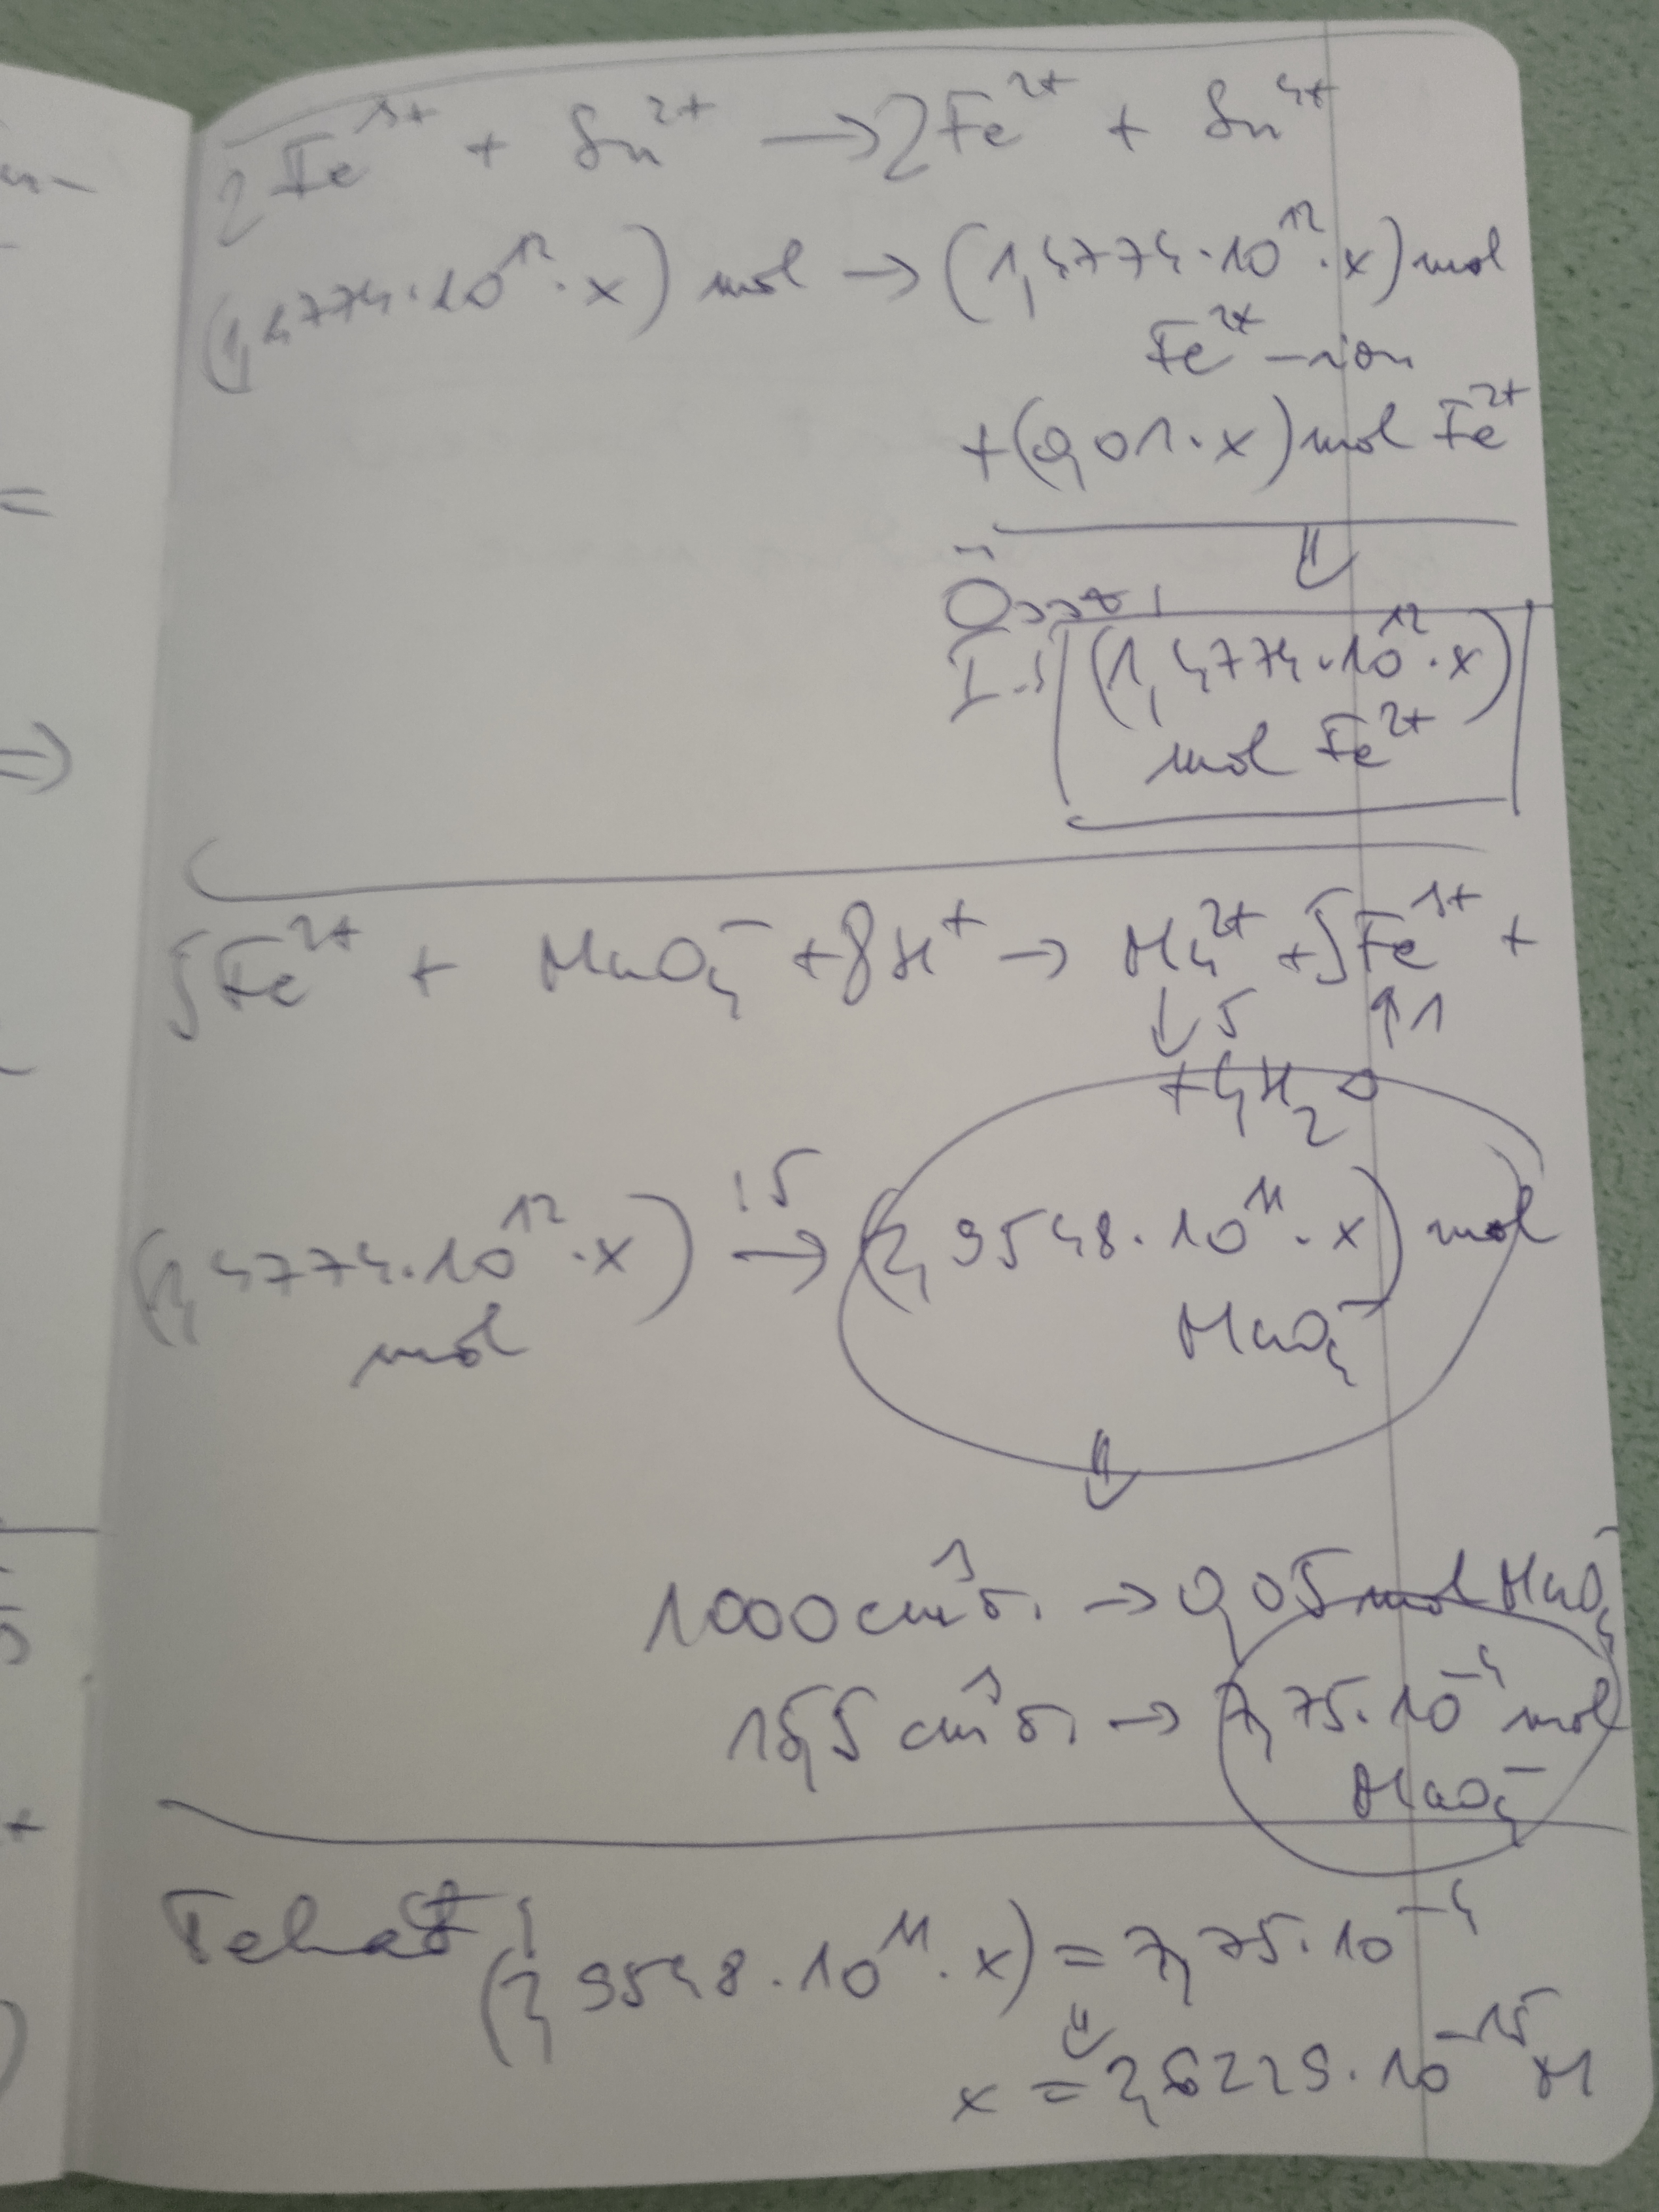 2Fe³⁺ + Sn²⁺ → 2Fe²⁺ + Sn⁴⁺
(1,4774·10¹²·x) mol → (1,4774·10¹²·x) mol
Fe²⁺-ion
+(0,01·x) mol Fe²⁺
⇓
Össz.:
(1,4774·10¹²·x)
mol Fe²⁺
5Fe²⁺ + MnO₄⁻ + 8H⁺ → Mn²⁺ + 5Fe³⁺ +
↓5 ↑1
+4H₂O
(1,4774·10¹²·x) :5 → (2,9548·10¹¹·x) mol
mol MnO₄⁻
⇓
1000 cm³ o. → 0,05 mol MnO₄⁻
15,5 cm³ o. → 7,75·10⁻⁴ mol
MnO₄⁻
Tehát:
(2,9548·10¹¹·x) = 7,75·10⁻⁴
⇓
x = 2,6229·10⁻¹⁵ M